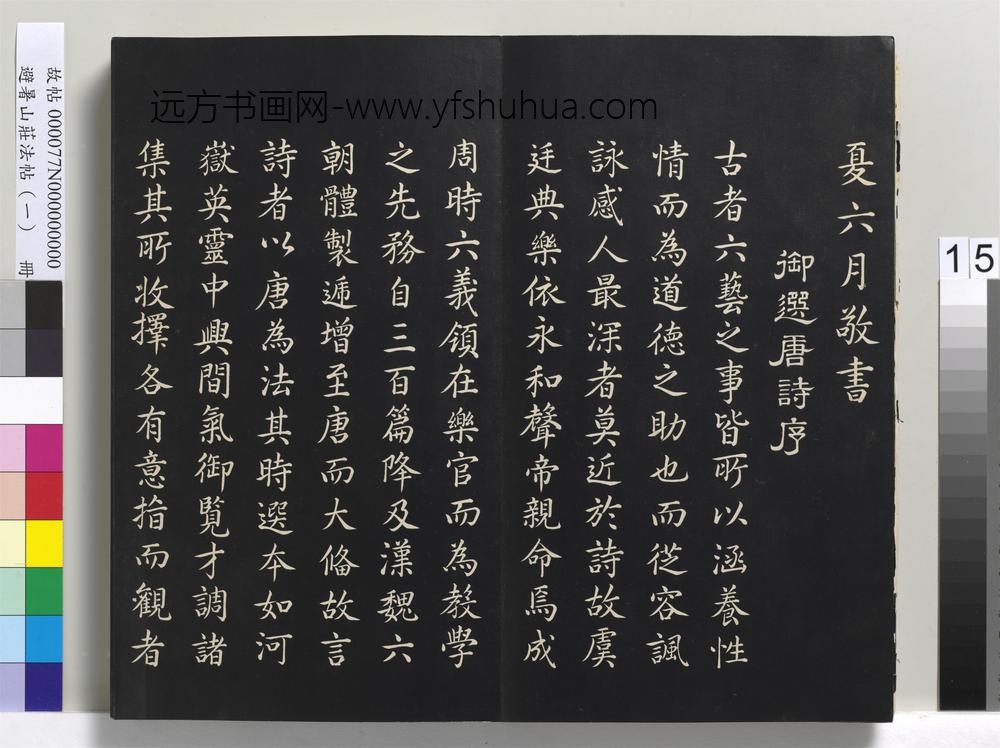 远方书画网-www.yfshuhua.com
夏六月敬書
御選唐詩序
古者六藝之事皆所以涵養性
情而為道德之助也而從容諷
詠感人最深者莫近於詩故虞
廷典樂依永和聲帝親命焉成
周時六義領在樂官而為教學
之先務自三百篇降及漢魏六
朝體製遞增至唐而大備故言
詩者以唐為法其時選本如河
嶽英靈中興間氣御覽才調諸
集其所收擇各有意指而觀者
故帖000077N000000000
避暑山莊法帖(一) 冊
15